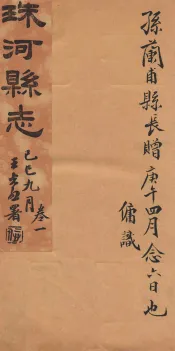 孫蘭甫縣長贈庚午四月念六日也
傭識
珠河縣志
己巳九月
卷一
署